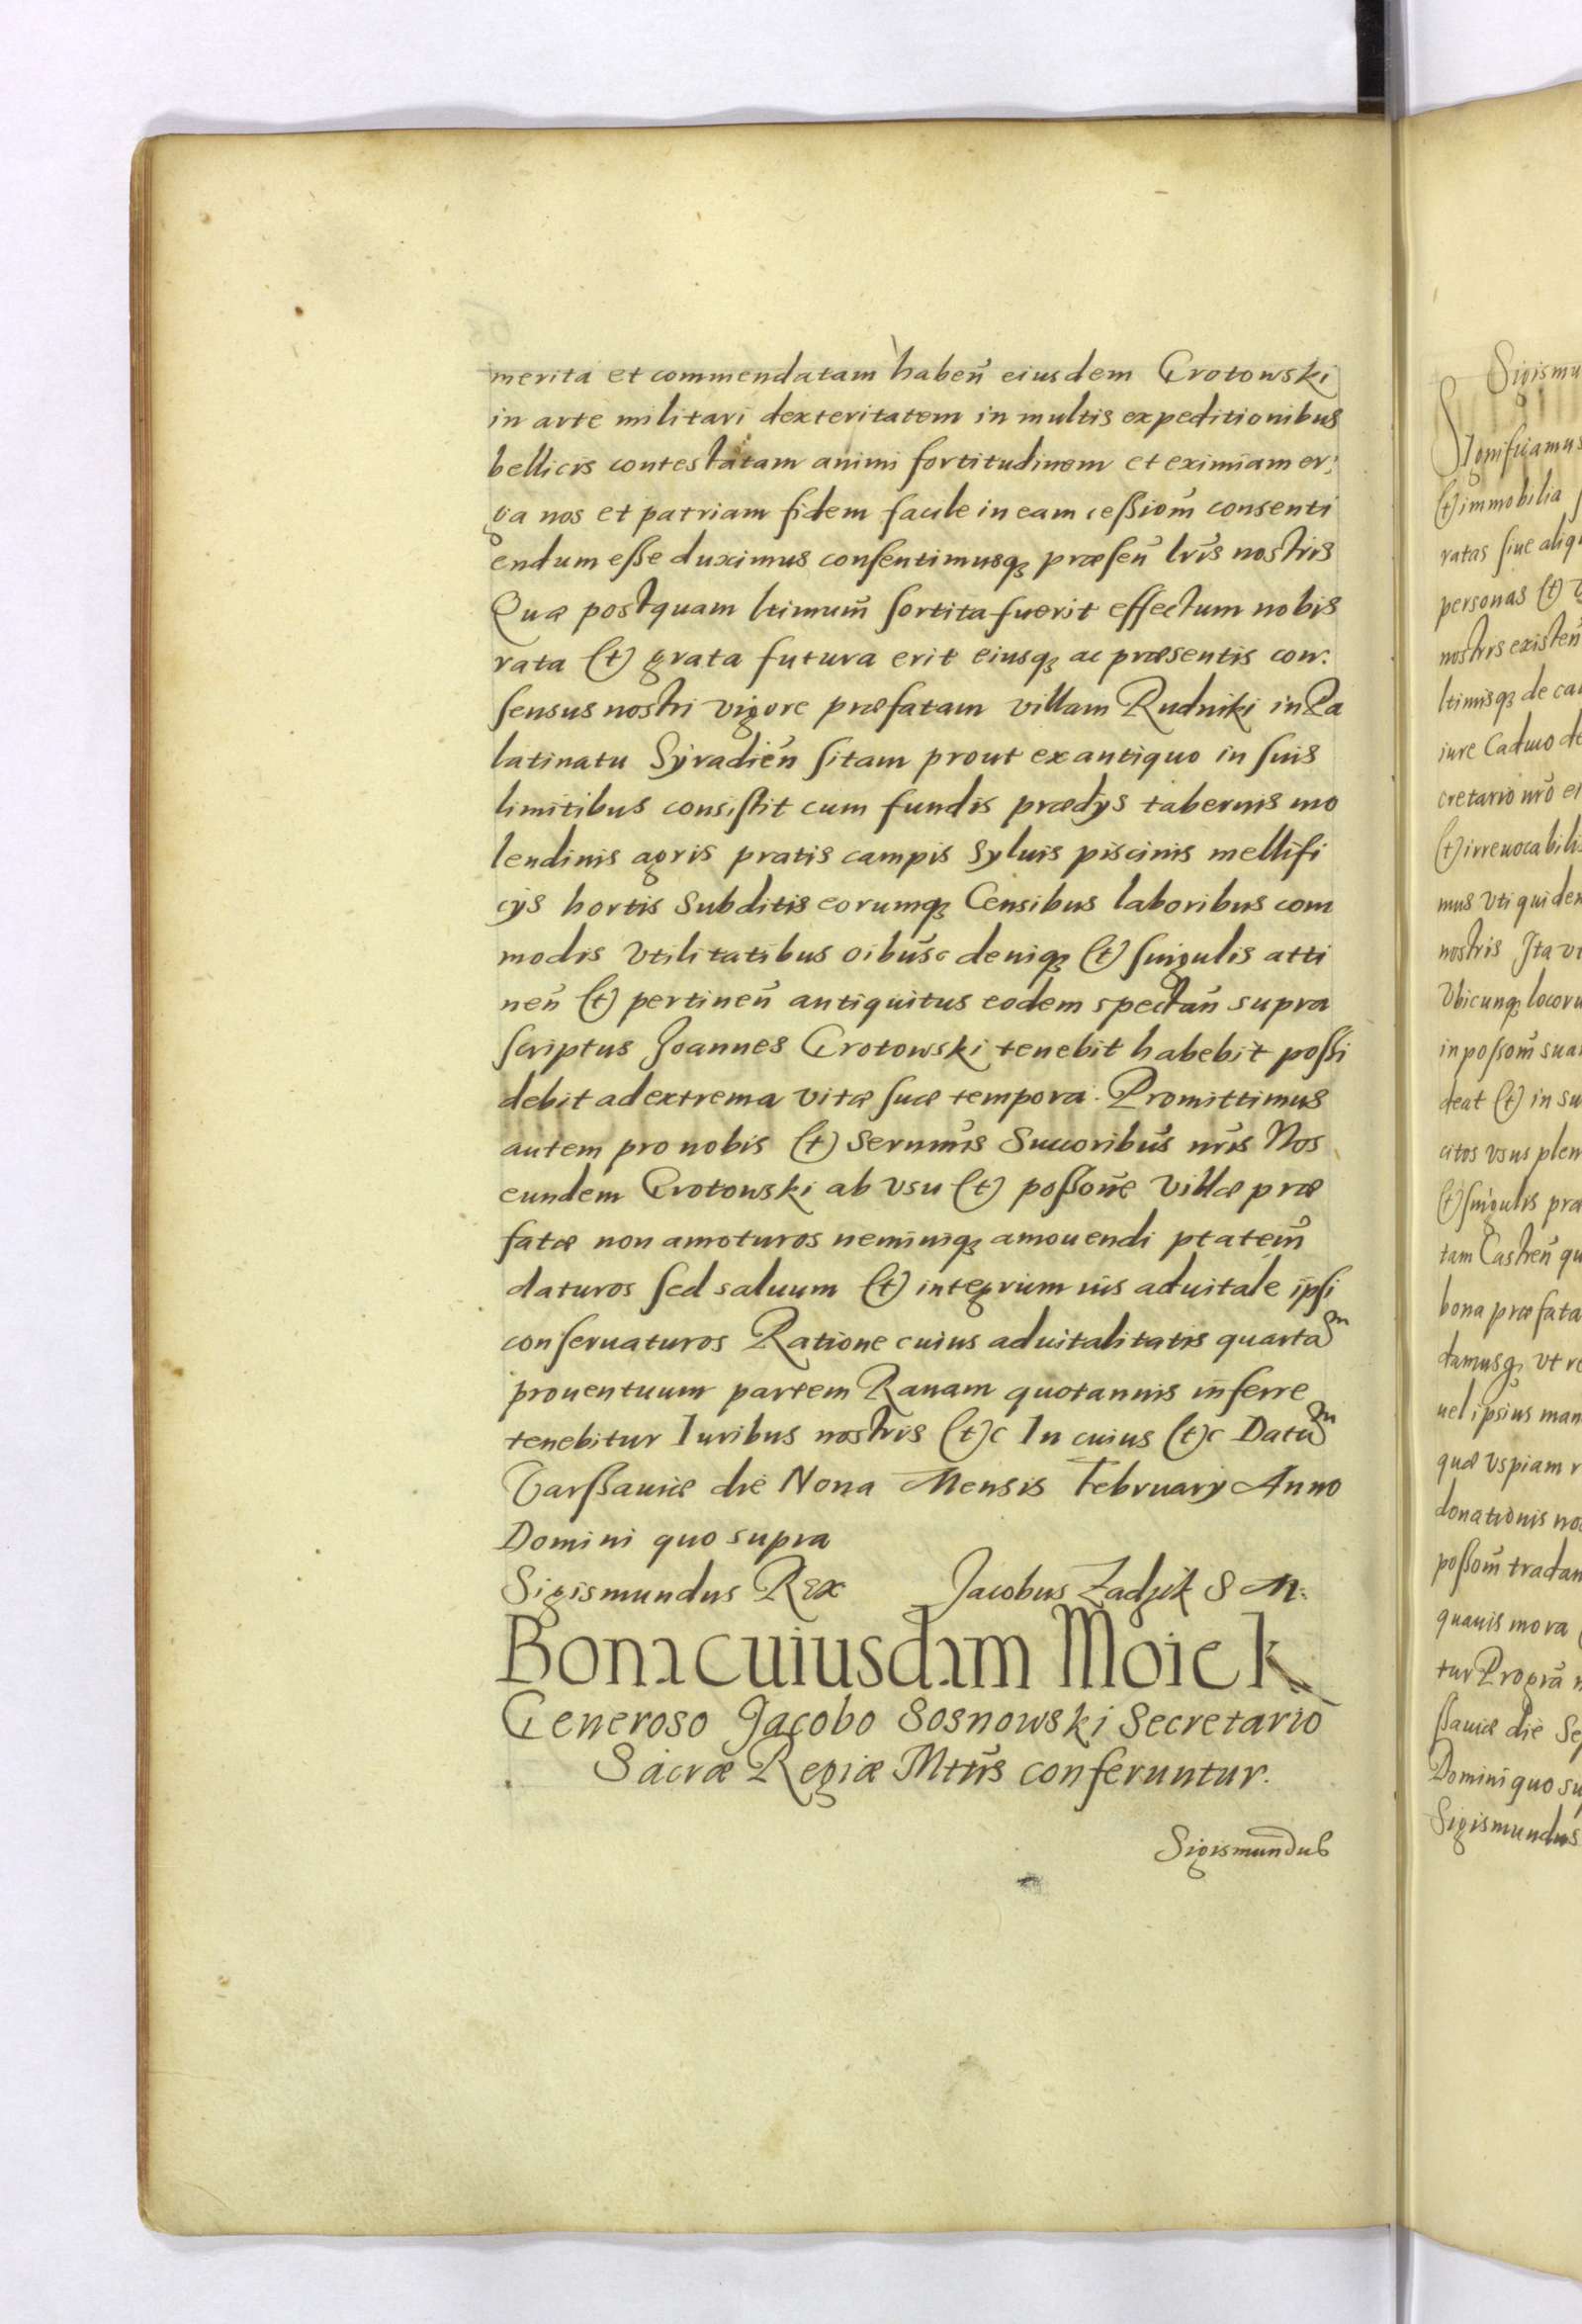 merita et commendatam habeñ eiusdem Grotowski
in arte militari dexteritatem in multis expeditionibus
bellicis contestatam animi fortitudinem et eximiam er:
ga nos et patriam fidem facile in eam ceßiom̃ consenti
endum eße duximus consentimusq̃ præseñ lr̃is nostris
Quæ postquam ltimum̃ sortita fuerit effectum nobis
rata (t) grata futura erit eiusq̃ ac præsentis con:
sensus nostri vigore præfatam villam Rudniki in Pa
latinatu Syradieñ sitam prout ex antiquo in suis
limitibus consistit cum fundis prædys tabernis mo
lendinis agris pratis campis Syluis piscinis mellifi
cÿs hortis Subditis eorumq̃ Censibus laboribus com
modis Vtilitatibus oĩbusc deniq̃ (t) singulis atti
neñ (t) pertineñ antiquitus eodem spectañ supra
scriptus Joannes Grotowski tenebit habebit poßi
debit ad extrema vitæ suæ tempora. Promittimus
autem pro nobis (t) Sernm̃is Succoribus̃ nr̃is Nos
eundem Grotowski ab vsu (t) poßoñe Villæ præ
fatæ non amoturos neminiq̃ amouendi ptatem̃
daturos sed saluum (t) integrum ius aduitale ipsi
conseruaturos Ratione cuius aduitalitatis quartam
prouentuum partem Rauam quotannis inferre
tenebitur Iuribus nostris (t)c In cuius (t)c Datum
Varßauiæ die Nona Mensis February Anno
Domini quo supra
Sigismundus Rex Jacobus Zadzik S M:
Bona cuiusdam Moiek
Generoso Jacobo Sosnowski Secretario
Sacræ Regiæ Mttis̃ conferuntur.
Sigismundus
Sigismu
Significamus
(t) immobilia
ratas siue aliq
personas (t)
nostris existeñ
ltimisq̃ de ca
iure Caduco de
cretario nr̃o e
(t) irreuocabili
mus Vti quidem
nostris Ita vt
Vbicunq̃ locoru
in poßom̃ sua
deat (t) in su
citos vsus plen
(t) singulis præ
tam Castreñ qu
bona præfata
damusq̃ vt re
uel ipsius man
quæ vspiam
donationis nos
poßom̃ tradan
quauis mora
tur Propra
ßauiæ die Se
Domini quo su
Sigismundus